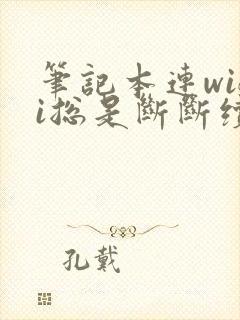 筆記本連wi
i總是斷斷
孔戴